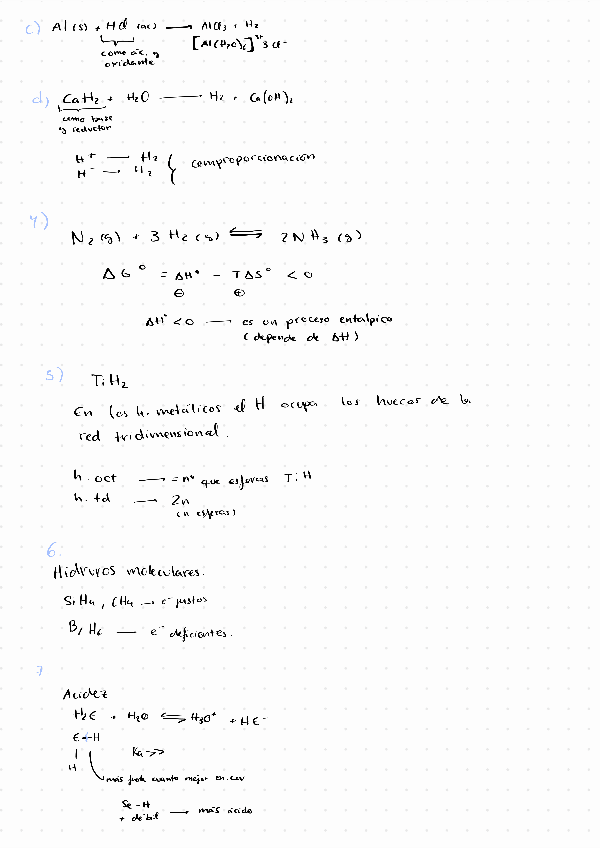 c) Al (s) + HCl (ac) → AlCl3 + H2
como ác. y oxidante
[Al(H2O)6]3+ 3Cl-
d) CaH2 + H2O → H2 + Ca(OH)2
como base y reductor
H+ — H2
H- → H2
comproporcionación
4.)
N2 (g) + 3 H2 (g) ⇌ 2NH3 (g)
ΔG° = ΔH° - TΔS° < 0
⊖ ⊕
ΔH° < 0 → es un proceso entálpico
(depende de ΔH)
5) TiH2
En los h. metálicos el H ocupa los huecos de la
red tridimensional.
h. oct → = nº que esferas TiH
h. td → 2n
(n esferas)
6.
Hidruros moleculares.
SiH4, CH4 → e- justos
B2H6 — e- deficientes.
7
Acidez
H2E + H2O ⇌ H3O+ + HE-
E-H
|
H
Ka >>
más cuanto mejor
Se-H
+ débil → más ácido